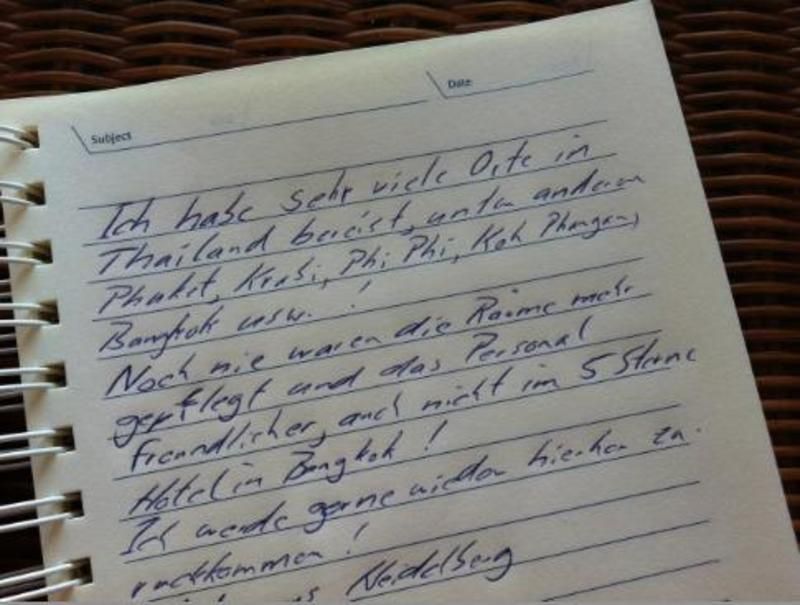 Subject
Date
Ich habe sehr viele Orte in
Thailand bereist, unter anderem
Phuket, Krabi, Phi Phi, Koh Phangan,
Bangkok usw. !
Noch nie waren die Räume mehr
gepflegt und das Personal
freundlicher, auch nicht im 5 Sterne
Hotel in Bangkok !
Ich werde gerne wieder hierher zu-
rückkommen !
Heidelberg